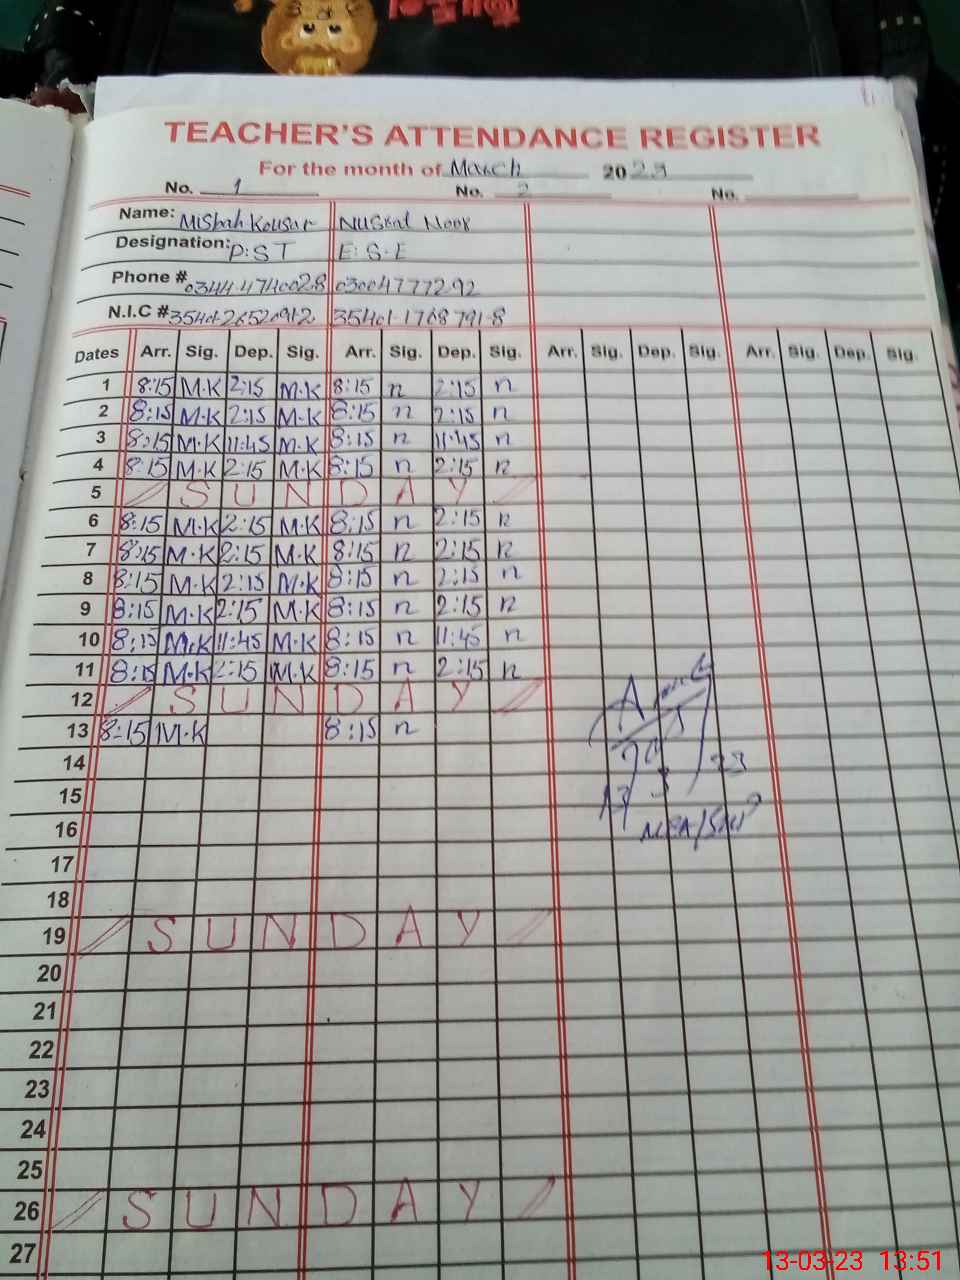 TEACHER'S ATTENDANCE REGISTER
For the month of March 2023
No. 1 No. 2 No.
Name: Misbah Kousar Nusrat Noor
Designation: P:S T E:S.E
Phone # 0344 4740028 03004777292
N.I.C #
Dates Arr. Sig. Dep. Sig. Arr. Sig. Dep. Sig. Arr. Sig. Dep. Sig. Arr. Sig. Dep. Sig.
1 8:15 M.K 2:15 M.K 8:15 n 2:15 n
2 8:15 M.K 2:15 M.K 8:15 n 2:15 n
3 8:15 M.K 11:45 M.K 8:15 n 11:45 n
4 8:15 M.K 2:15 M.K 8:15 n 2:15 n
5 SUNDAY
6 8:15 M.K 2:15 M.K 8:15 n 2:15 n
7 8:15 M.K 2:15 M.K 8:15 n 2:15 n
8 8:15 M.K 2:15 M.K 8:15 n 2:15 n
9 8:15 M.K 2:15 M.K 8:15 n 2:15 n
10 8:15 M.K 11:45 M.K 8:15 n 11:45 n
11 8:15 M.K 2:15 M.K 8:15 n 2:15 n
12 SUNDAY
13 8:15 M.K 8:15 n
14
15
16
17
18
19 SUNDAY
20
21
22
23
24
25
26 SUNDAY
27
13-03-23 13:51